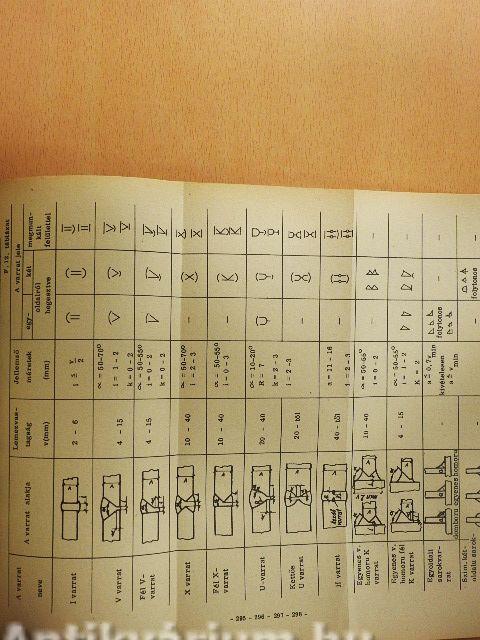 F.12. táblázat
A varrat neve
A varrat alakja
Lemezvas-
tagság
v(mm)
Jellemző
méretek
(mm)
A varrat jele
egy-
két
oldalról
hegesztve
megmun-
kált
felülettel
I varrat
2 - 6
V varrat
4 - 15
α = 50-70°
i = 1 - 2
k = 0 - 2
Fél V-
varrat
4 - 15
α = 50-55°
i = 0 - 2
k = 0 - 2
X varrat
10 - 40
α = 50-70°
i = 2 - 3
Fél X-
varrat
10 - 40
α = 50-55°
i = 0 - 3
U-varrat
20 - 40
α = 10-20°
R = 7
k = 2 - 3
Kettős
U varrat
20 - tól
i = 2 - 3
varrat
40 - től
a = 11 - 16
i = 2 - 3
Egyenes v.
homorú K
varrat
10 - 40
i = 0 - 2
Egyenes v.
homorú fél
K varrat
4 - 15
i = 1 - 2
K = 2
Egyoldali
sarokvar-
rat
domború egyenes homorú
kivételesen
folytonos
Szim. két-
oldalu sarok-
folytonos
- 295 - 296 - 297 - 298 -